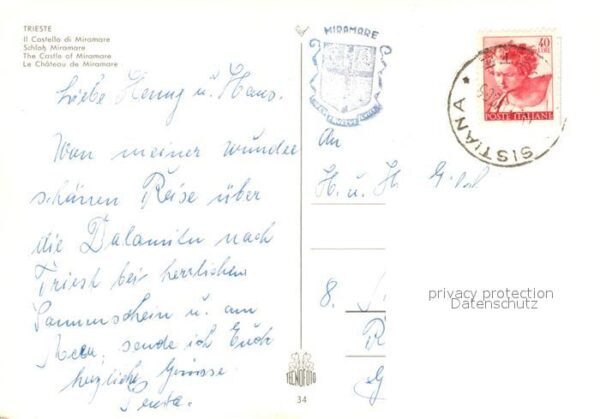 TRIESTE
Il Castello di Miramare
Schloß Miramare
The Castle of Miramare
Le Château de Miramare
Liebe Henny u. Hans.
Von meiner wunder
schönen Reise über
die Dalamiten nach
Triest bei herrlichem
Sonnenschein u. am
Meer, sende ich Euch
herzliche Grüsse
MIRAMARE
40
LIRE
POSTE ITALIANE
SISTIANA
An
H. u. H.
8.
privacy protection
Datenschutz
TECNOFOTO
34